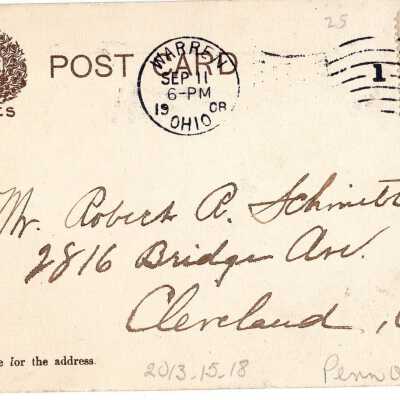 25
POST CARD
WARREN
SEP 11
6-PM
19 08
OHIO
1
ES
Mr. Robert A. Schmitt
2816 Bridge Ave.
Cleveland, O
e for the address.
2013.15.18
Penn O